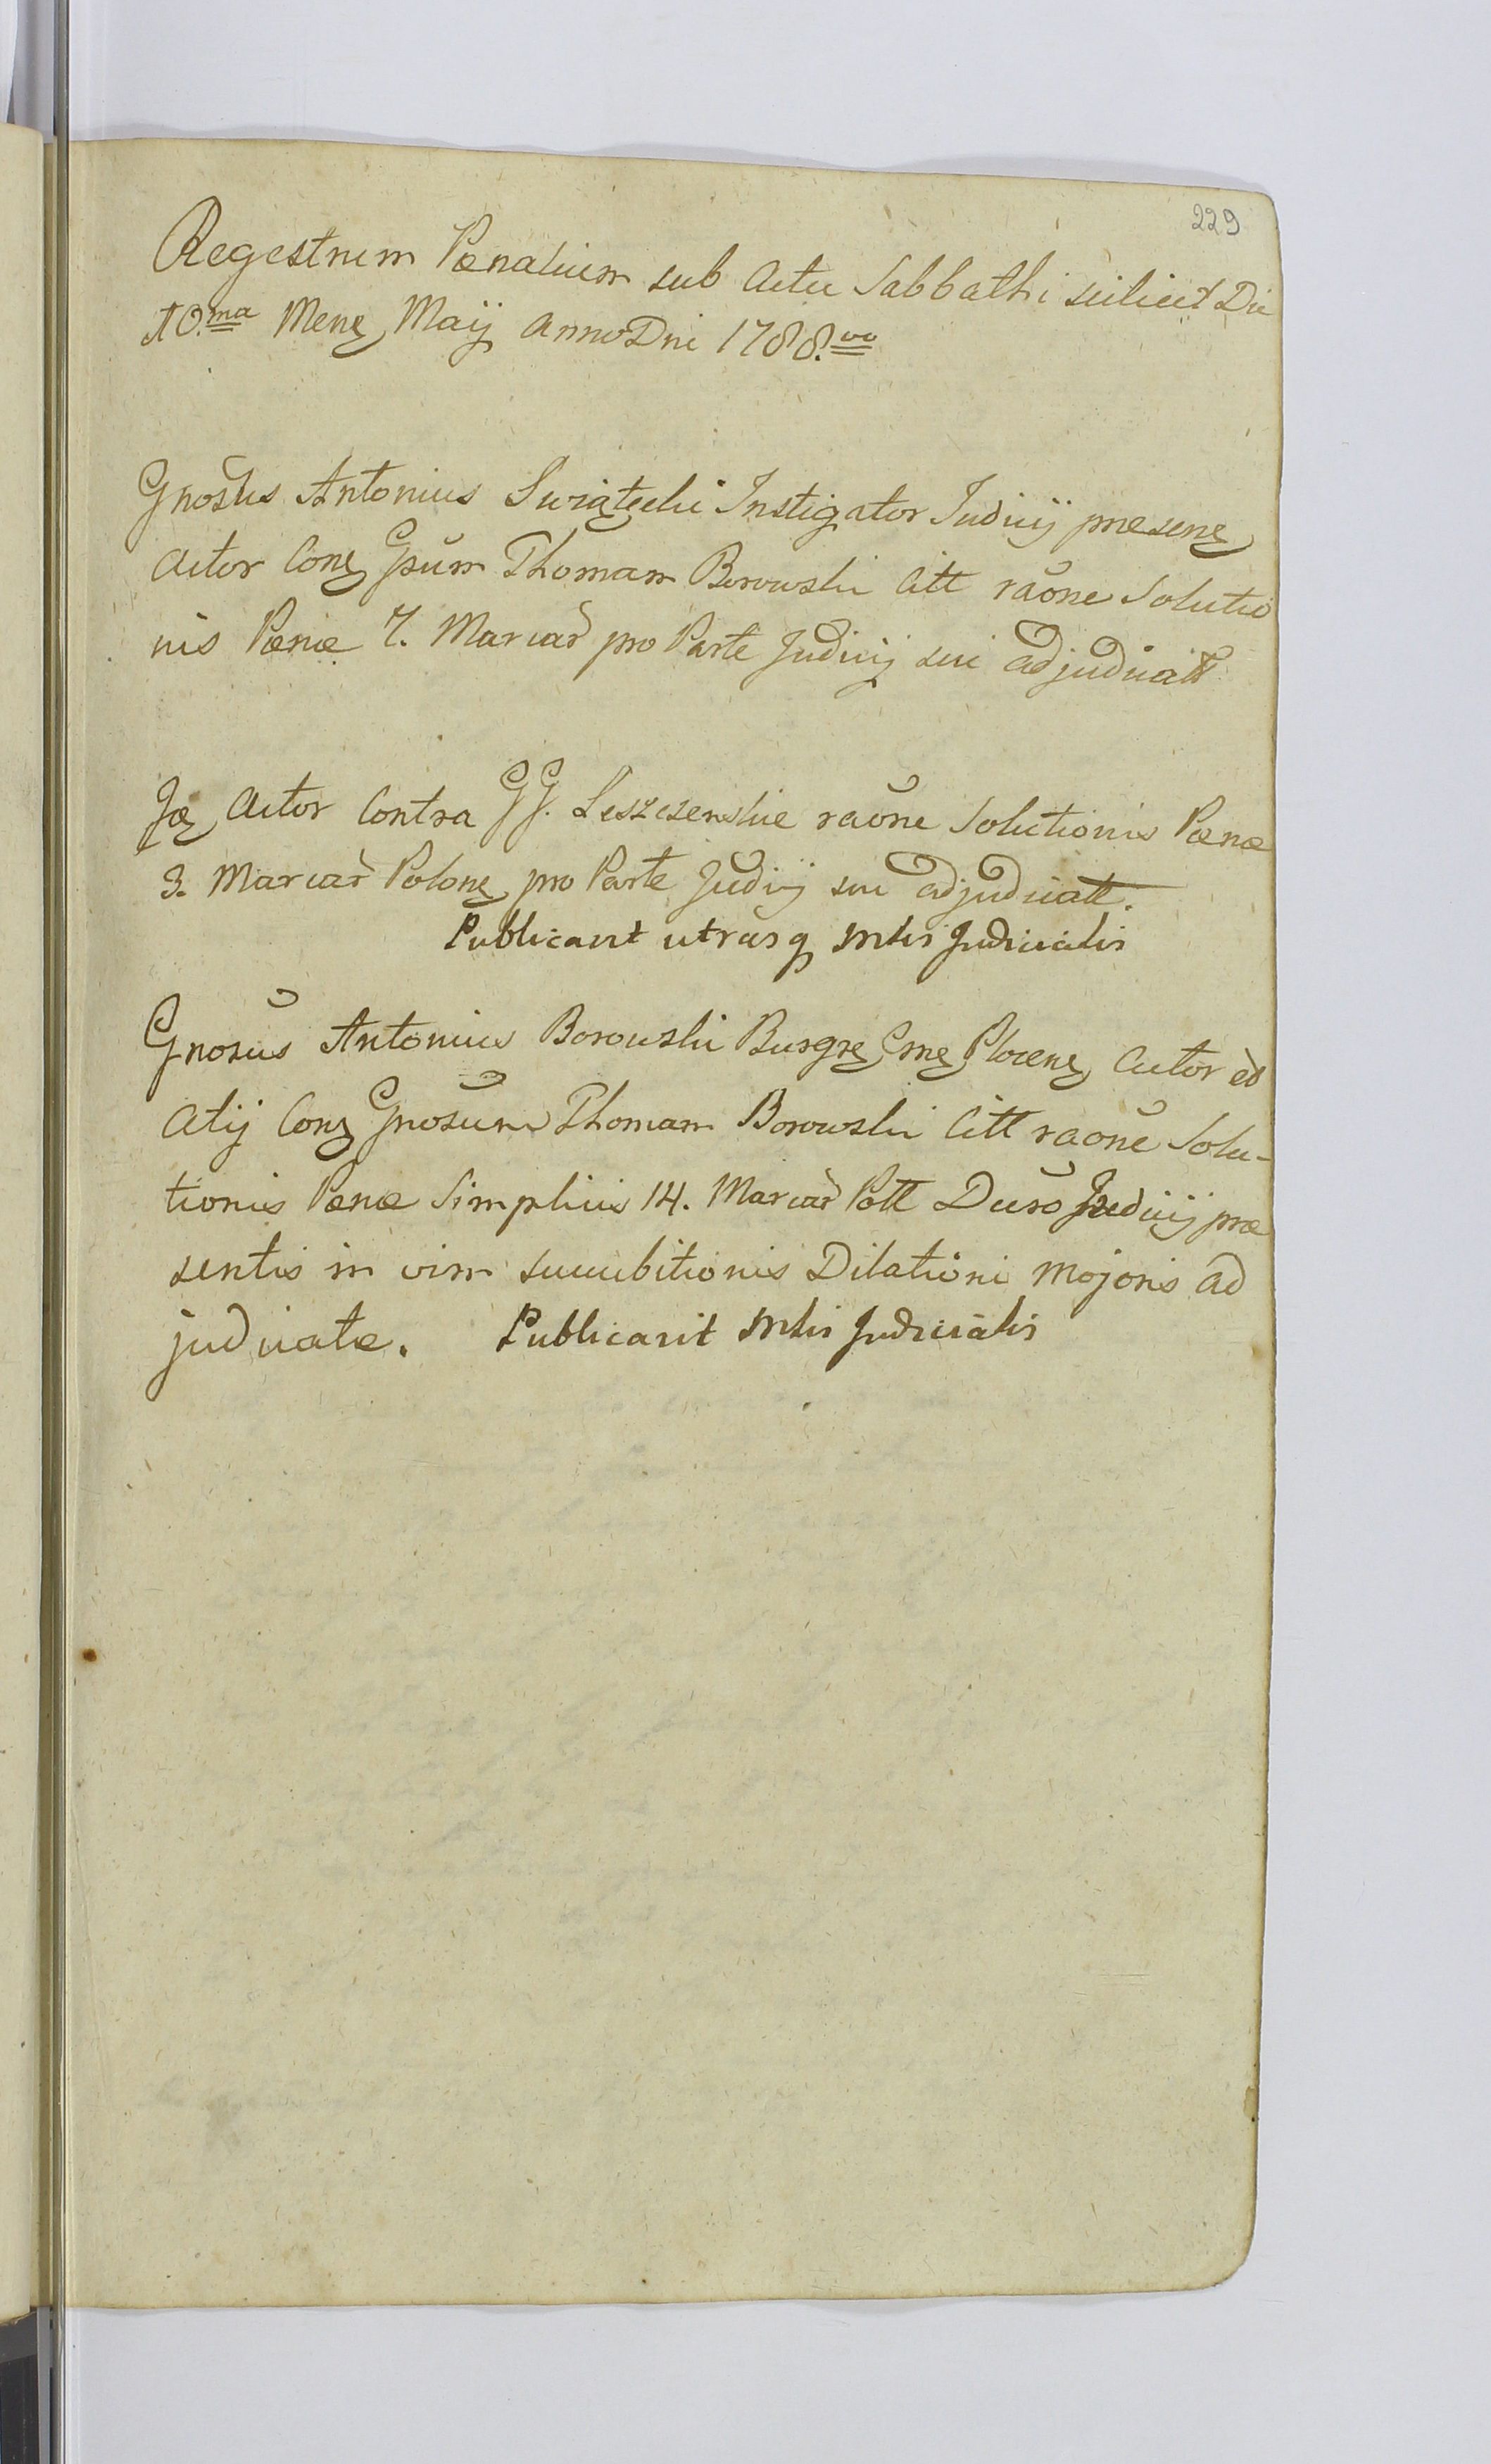 229
Regestrum Pœnalium sub Actu Sabbathi scilicet Die
10.ma Menȩ Maij Anno Dni 1788.vo
Gnosus Antonius Swiątecki Instigator Judicij præsenȩ
Actor Conȩ Gsum Thomam Borowski Citt raone Solutio
nis Pœnæ 7. Marcar pro Parte Judicij sui adjudicatt
Jȩ Actor Contra GG. Leszczenskie raone Solutionis Pœnæ
3. Marcar Polonȩ pro Parte Judicij sui adjudicatt.
Publicavit utrasq Mlis Judicialis
Gnosus Antonius Borowski Burgrȩ Cmȩ Plocenȩ Actor et
Alij Conȩ Gnosum Thomam Borowski Citt raone Solu-
tionis Pœnæ Simplicis 14. Marcar Poll Duro Judicij præ
sentis in vim succubitionis Dilationi Majoris ad
judicatæ. Publicavit Mlis Judicialis